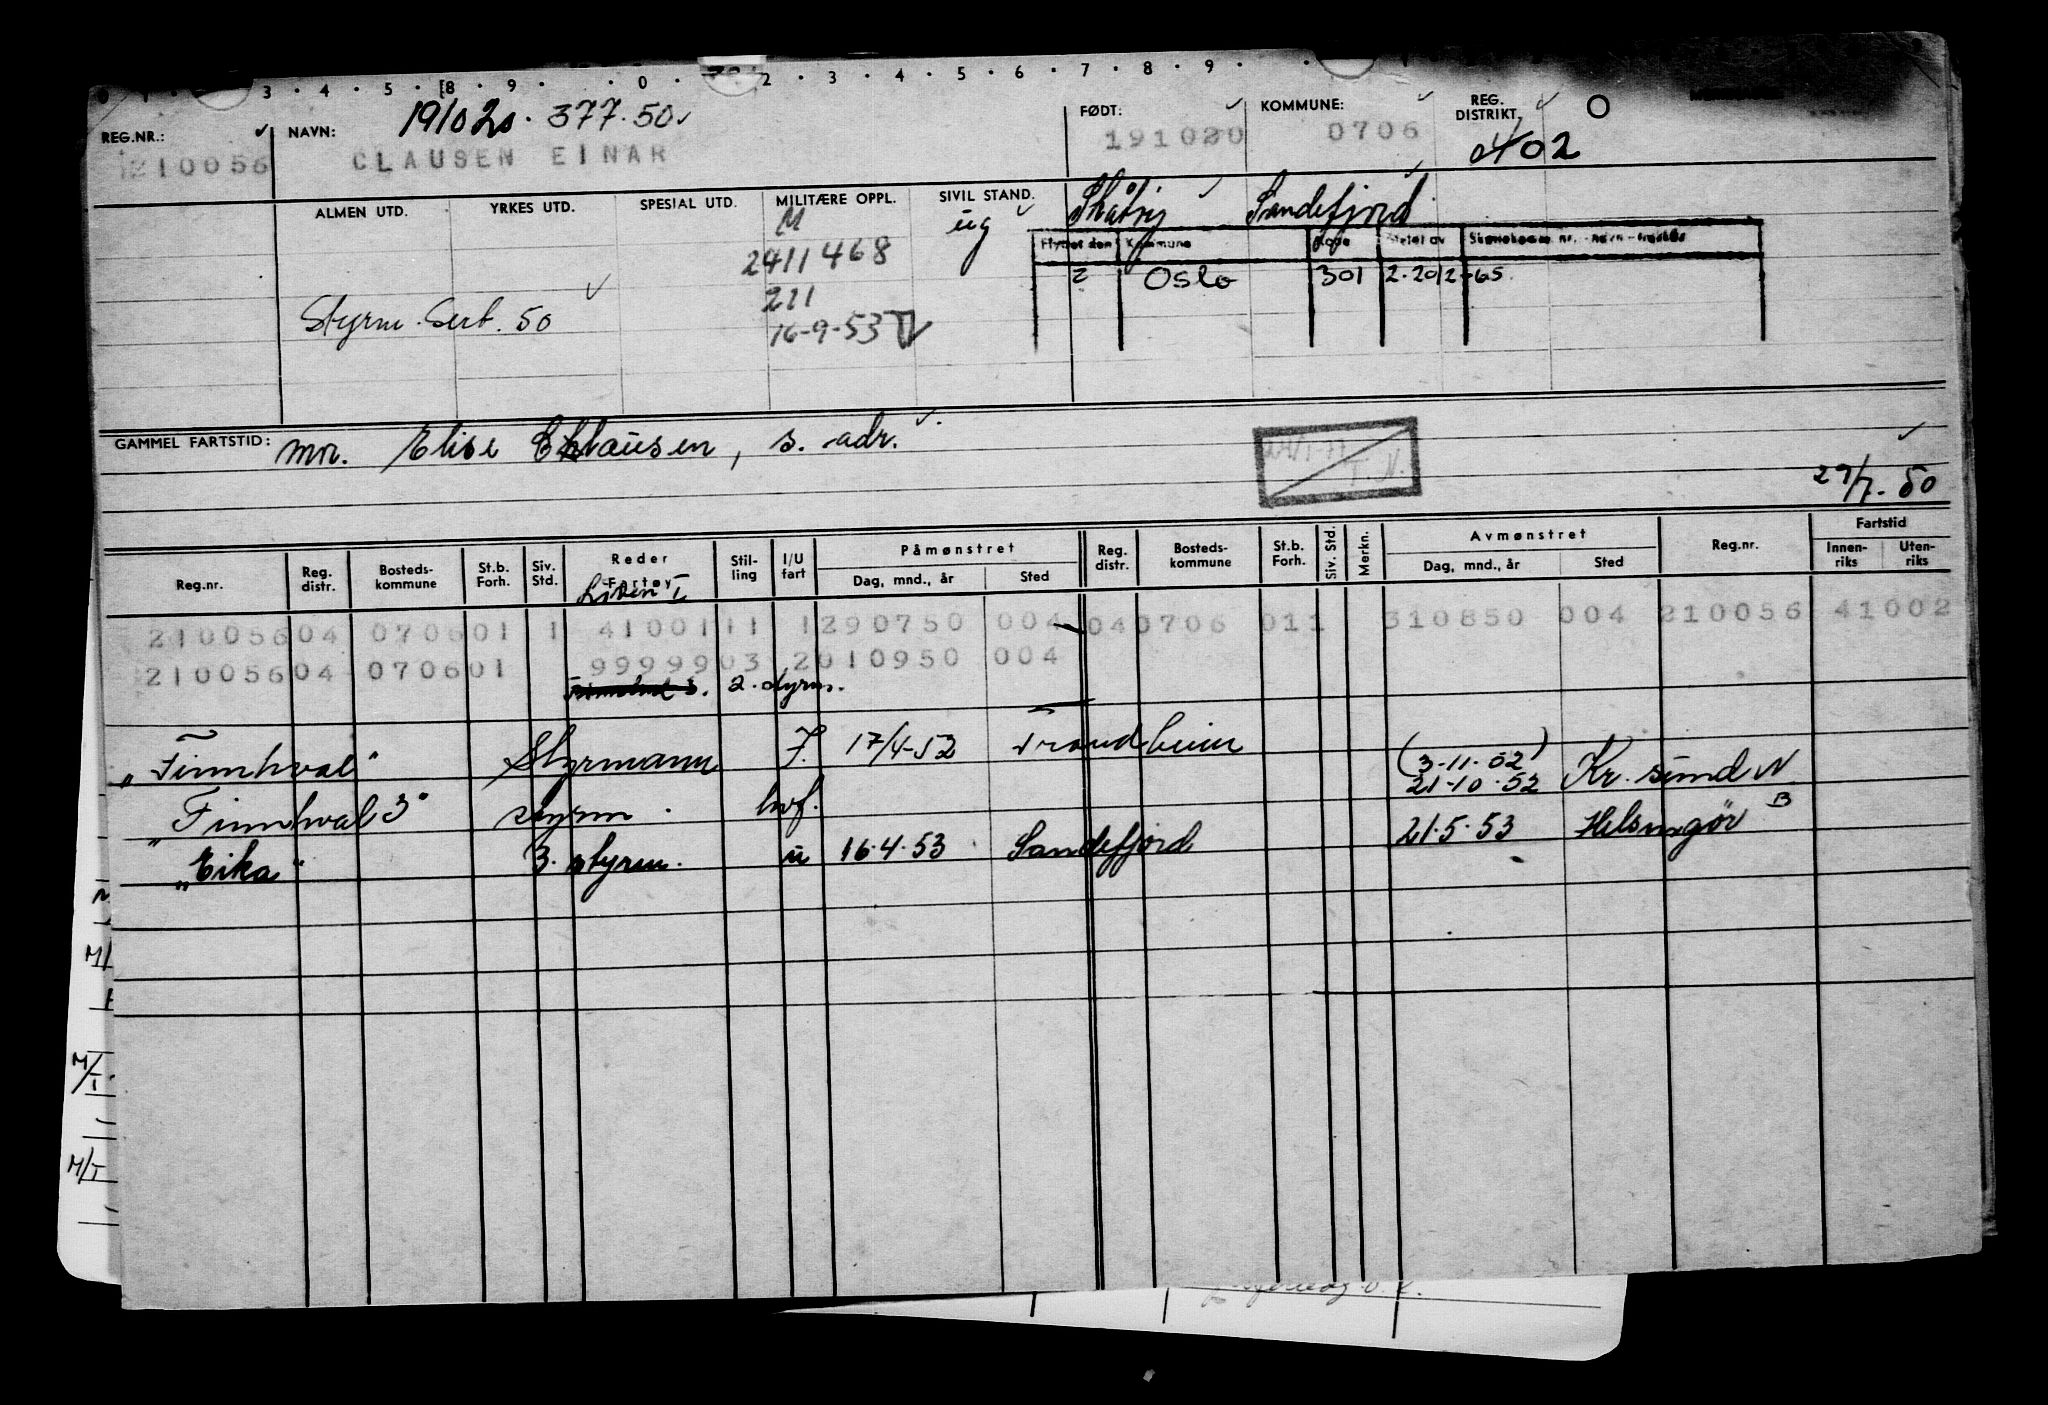 3 · 4 · 5 · 8 · 9 · · 0 · 2 · 3 · 4 · 5 · 6 · 7 · 8 · 9 ·
REG.NR.: NAVN: 191020 · 377 · 50 FØDT: KOMMUNE: REG. DISTRIKT O
210056 CLAUSEN EINAR 191020 0706 402
ALMEN UTD. YRKES UTD. SPESIAL UTD. MILITÆRE OPPL. SIVIL STAND.
M ug Skåtøy Sandefjord
Flyttet den Kommune Kode
2411468 2 Oslo 301 2-2012-65
Styrm. Sert. 50 211
16-9-53
GAMMEL FARTSTID: mor. Elise Clausen, s. adr.
T. N.
29/7-50
Reg.nr. Reg. distr. Bosteds-kommune St.b. Forh. Siv. Std. Reder Fartøy Stil-ling I/U fart Påmønstret Dag, mnd., år Sted Reg. distr. Bosteds-kommune St.b. Forh. Siv. Std. Merkn. Avmønstret Dag, mnd., år Sted Reg.nr. Fartstid Innen-riks Uten-riks
210056 04 0706 01 1 41001 11 1 290750 004 04 0706 01 1 1 310850 004 210056 41002
210056 04 0706 01 99999 03 2 010950 004
2. styrm.
"Finnhval" Styrmann I. 17/4-52 Trondheim (3-11-02) 21-10-52 Kr. sund N
"Finnhval 3" styrm. hvf.
"Eika" 3. styrm. u 16.4.53 Sandefjord 21.5.53 Helsingör B
M/
M/I.
M/I